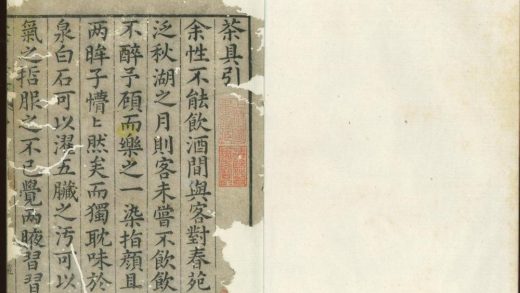 茶具引
余性不能飲酒間與客對春苑
泛秋湖之月則客未嘗不飲飲
不醉予顧而樂之一染指顏且
两眸子懵〻然矣而獨耽味於
泉白石可以濯五臟之污可以
氣之哲服之不已覺两腋習習